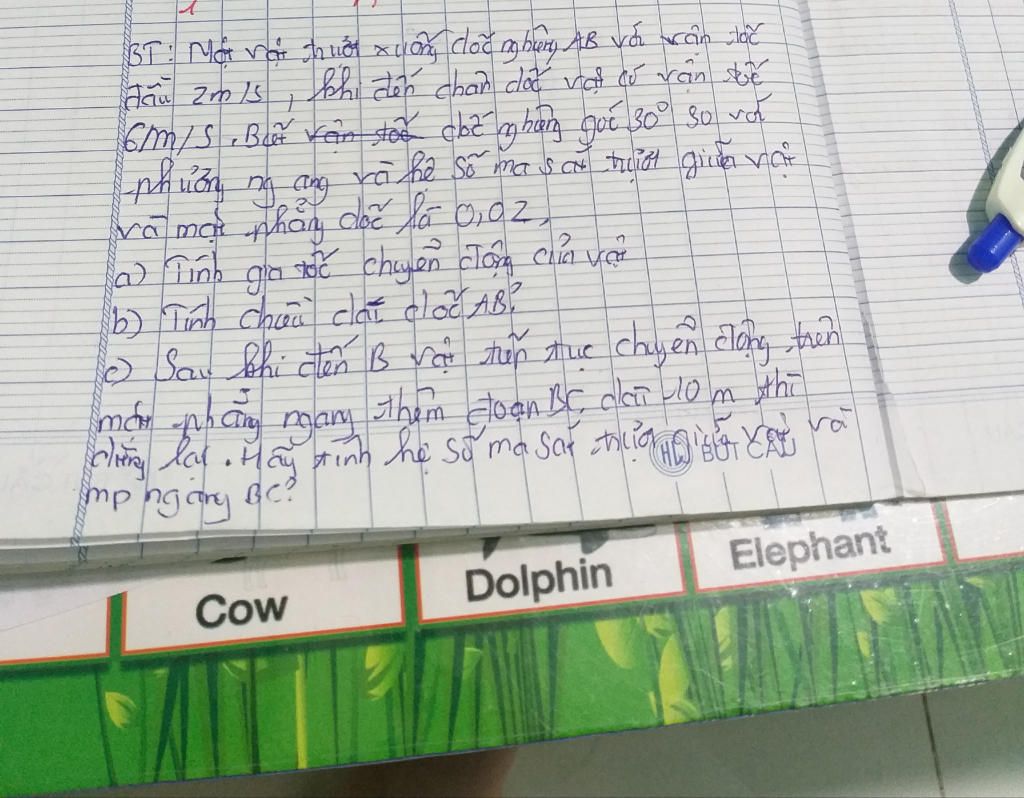 BT: Một vật trượt xuống dốc nghiêng AB với vận tốc
đầu 2m/s, khi đến chân dốc vật có vận tốc
6m/s. Biết vận tốc dốc nghiêng góc 30° so với
phương ngang và hệ số ma sát trượt giữa vật
và mặt phẳng dốc là 0,02,
a) Tính gia tốc chuyển động của vật
b) Tính chiều dài dốc AB?
c) Sau khi đến B vật tiếp tục chuyển động trên
mặt phẳng ngang thêm đoạn BC dài 10 m thì
dừng lại. Hãy tính hệ số ma sát trượt giữa vật và
mp ngang BC?
Cow
Dolphin
Elephant